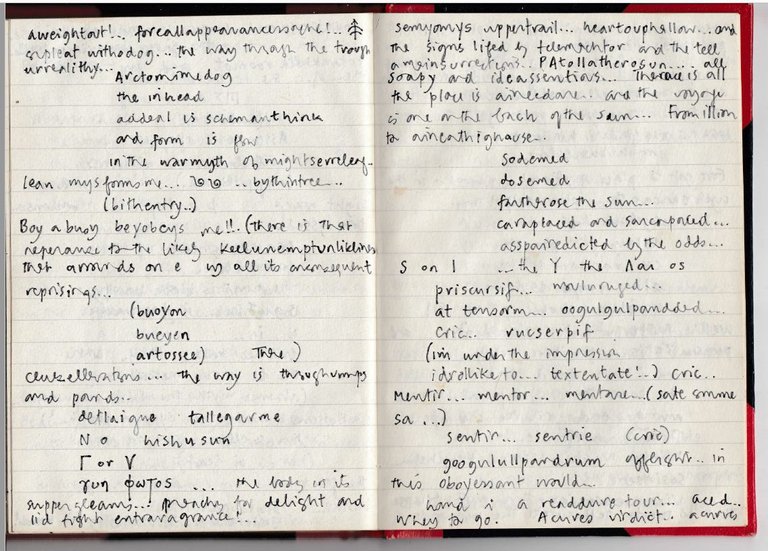 aweightout!.. foreallappearancessache!..
repleat withodog... the way through the trough
unrealithy...
Arctomimedog
the inhead
addeal is schemanthink
and form is flow
in the warmyth of mightserreleaf
lean mysformsme... bythintree..
(bithentry..)
Boy a buoy beyobeys me!!.. (there is that
neperance to the likely
that arrounds on e by all its inconsequent
reprisings...
(buoyon
bueyen
artossee) There )
the way is throughumps
and pards..
detlaique tallegarme
N o hishusun
Γ or V
γυη φωτος ... the body in its
suppergleams... preachy for delight and
lid fight entravagrance!...
semyomys uppertrail... heartouphallow... and
the signs lifed by telemachtor and the tell
ameinsurrections.. PAtollatherosun.... all
soapy and ideassentios... Therace is all
the place is aineedare.. and the voyage
is one on the back of the sun... From illion
to aineathighause..
sodemed
dosemed
fartherose the sun...
caraplaced and sarcapaced...
asspairedicted by the odds...
S on I ...the Y the Λαι os
priscursif...
at tensorm... oogulgulpandded...
cric.. rucserpif
(im under the impression
idrollike to... textentate!..) cric..
mentir... mentor... mentare...(sate smme
sa...)
sentir... sentrie (cric)
googulullpandrum offleight.. in
this oboyessant would...
hand is a readdure tour... aced..
whey to go. Acurves virdict.. acurves